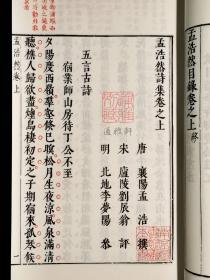 孟浩然目錄卷之上終
孟浩然詩集卷之上
唐 襄陽孟 浩 撰
宋 廬陵劉辰翁 評
明 北地李夢陽 參
五言古詩
宿業師山房待丁公不至
夕陽度西嶺羣壑倏已暝松月生夜涼風泉滿清
聽樵人歸欲盡煙鳥棲初定之子期宿來孤琴候
孟浩然 卷上